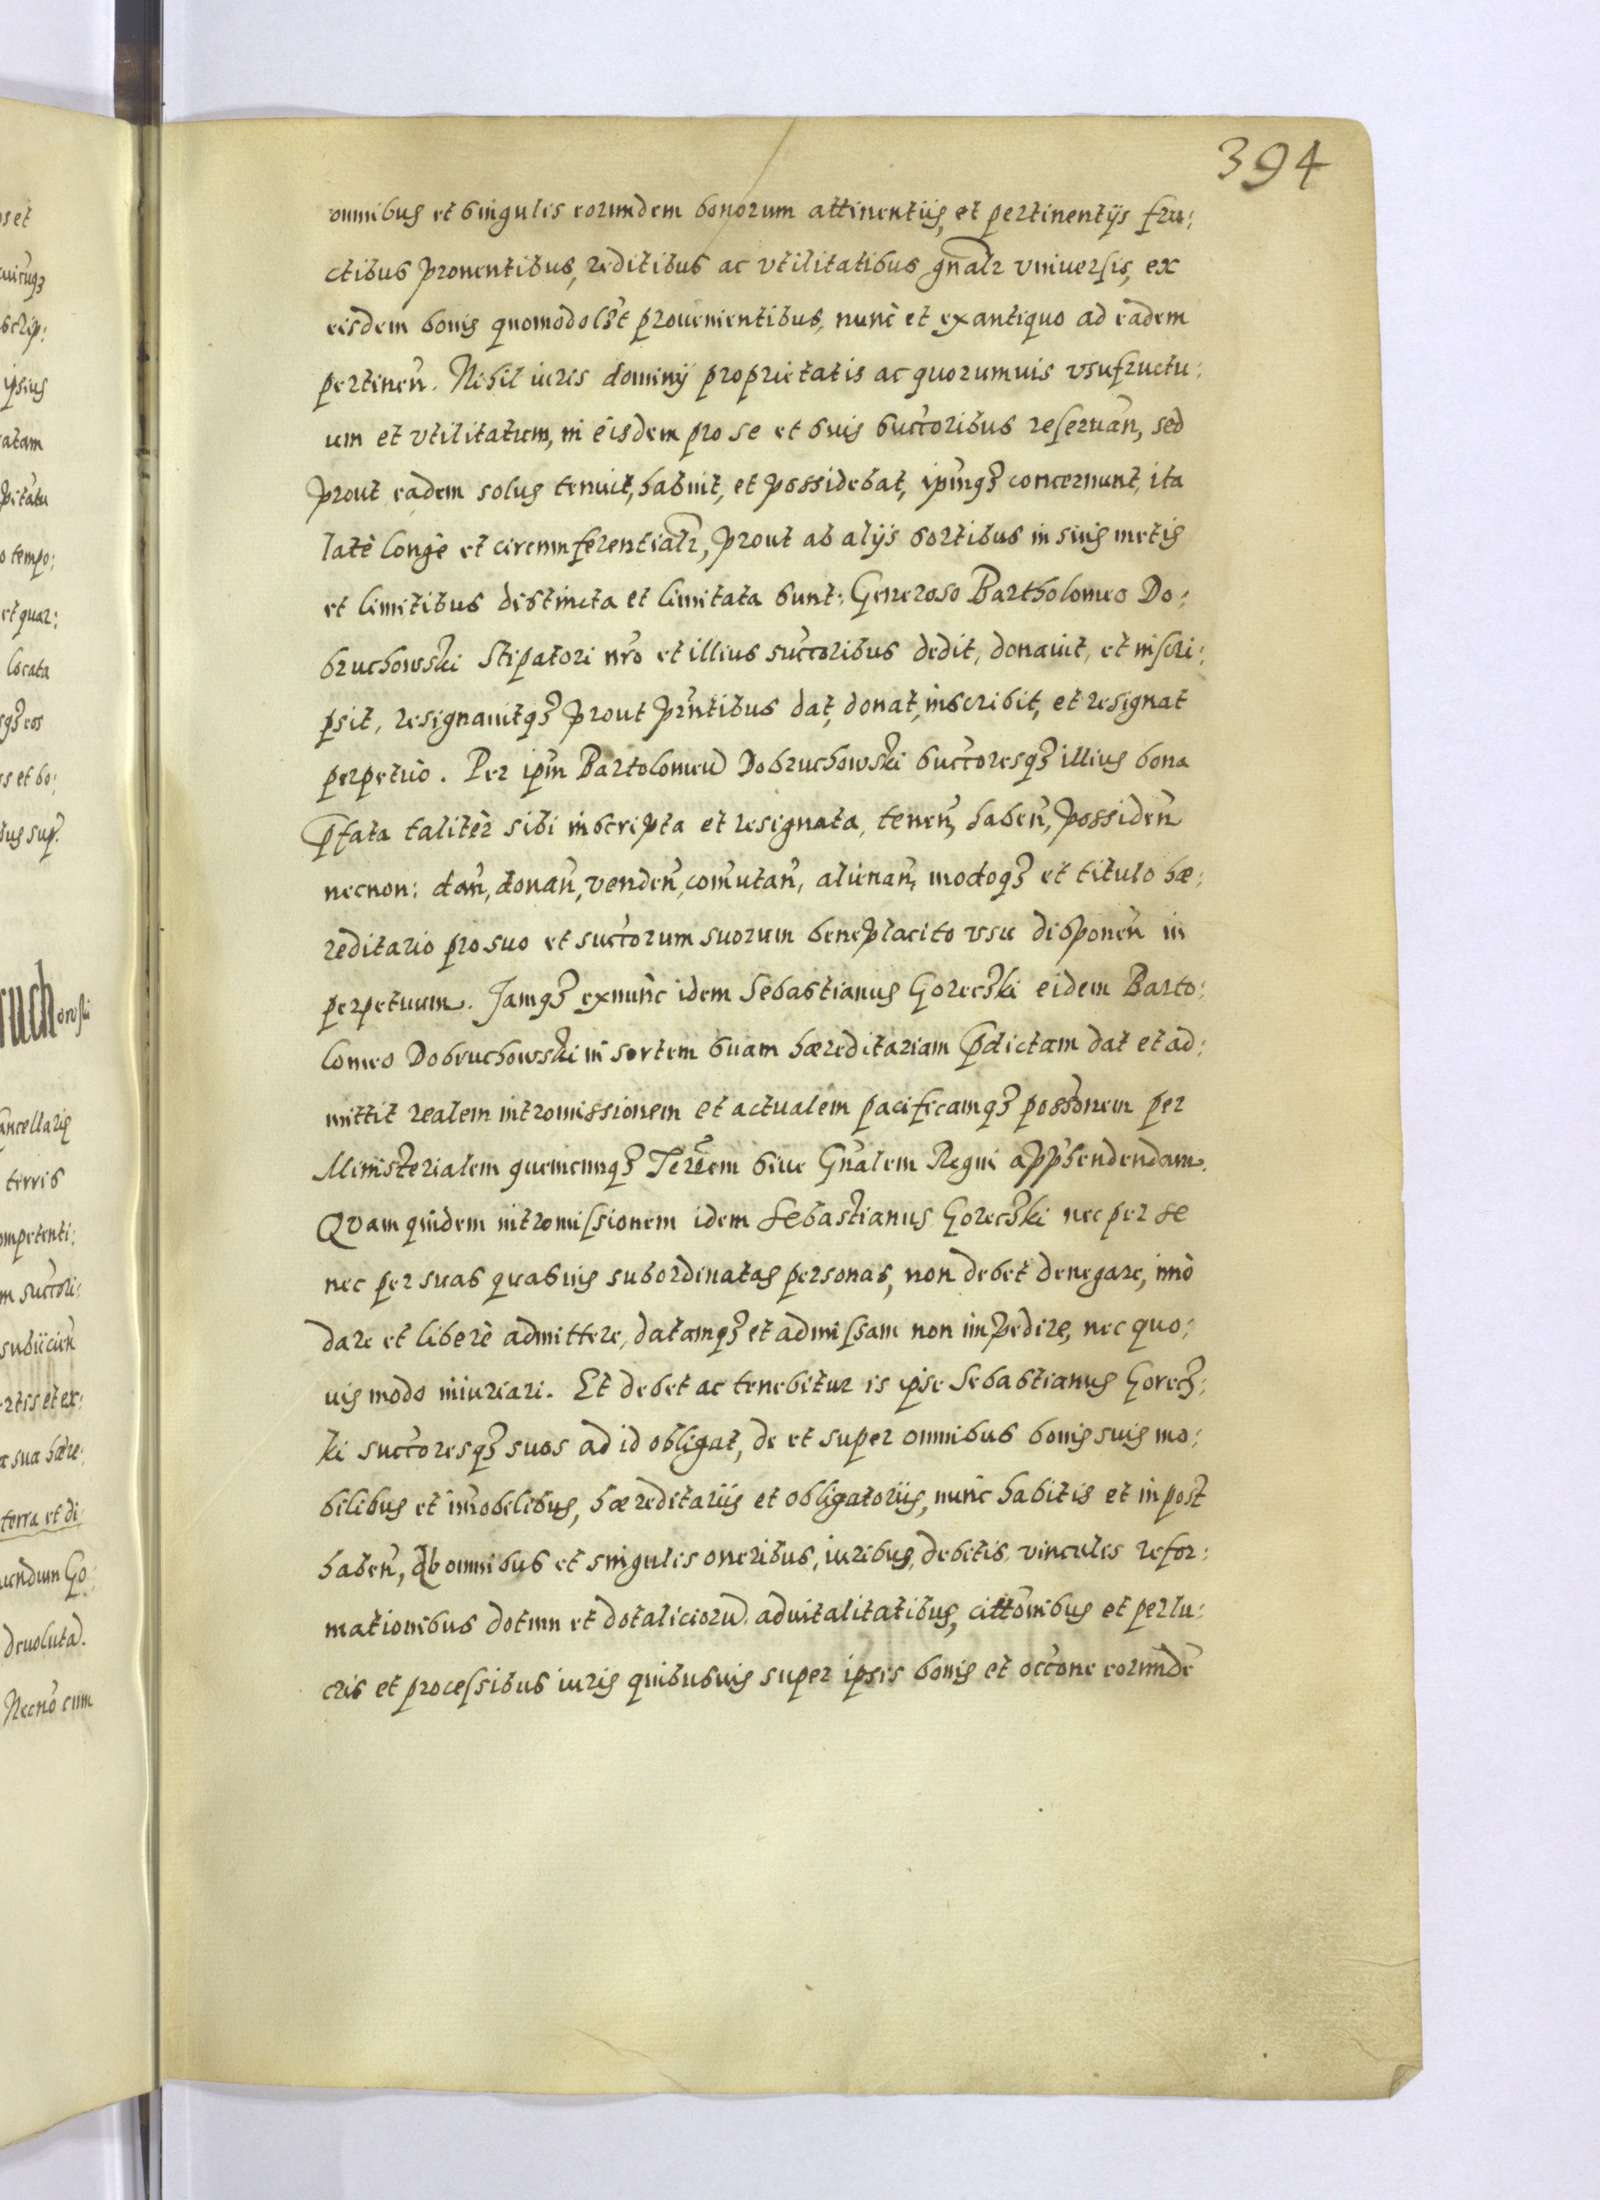 394
omnibus et singulis eorundem bonorum attinentiis, et pertinentijs fru:
ctibus prouentibus, reditibus ac vtilitatibus gnalr vniuersis, ex
eisdem bonis quomodolꝫt prouenientibus, nunc et exantiquo ad eadem
pertinen̄. Nihil iuris dominij proprietatis ac quorumuis vsufructu:
um et vtilitatum, in eisdem pro se et suis succoribus reseruan̄, sed
prout eadem solus tenuit, habuit, et possidebat, ipmqꝫ concernunt, ita
latè longè et circumferentialr, prout ab alijs sortibus in suis metis
et limitibus distincta et limitata sunt: Generoso Bartholomeo Do:
bruchowski Stipatori nro et illius succoribus dedit, donauit, et inscri:
psit, resignauitqꝫ prout prntibus dat, donat, inscribit, et resignat
perpetuò. Per ipm Bartolomeū Dobruchowski succoresqꝫ illius bona
pfata talitèr sibi inscripta et resignata, tenen̄, haben̄, possiden̄
necnon: dan̄, donan̄, venden̄, com̄utan̄, alienan̄, modoqꝫ et titulo hæ:
reditario pro suo et succorum suorum beneplacito vsu disponen̄ in
perpetuum. Jamqꝫ exnunc idem Sebastianus Gorecski eidem Barto:
lomeo Dobruchowski in sortem suam hæreditariam pdictam dat et ad:
mittit realem intromissionem et actualem pacificamqꝫ possonem per
Ministerialem quemcunqꝫ Terrem siue Gnalem Regni apphendendam.
Quam quidem intromissionem idem Sebastianus Gorecski nec per se
nec per suas quasuis subordinatas personas, non debet denegare, imò
dare et liberè admittere, datamqꝫ et admissam non impedire, nec quo:
uis modo iniuriari. Et debet ac tenebitur is ipse Sebastianus Gorecs:
ki succoresqꝫ suos ad id obligat, de et super omnibus bonis suis mo:
bilibus et im̄obilibus, hæreditariis et obligatoriis, nunc habitis et inpost
haben̄, Ab omnibus et singulis oneribus, iuribus, debitis, vinculis refor:
mationibus dotium et dotaliciorū aduitalitatibus, cittonibus et perlu:
cris et processibus iuris quibusuis super ipsis bonis et occone eorundē